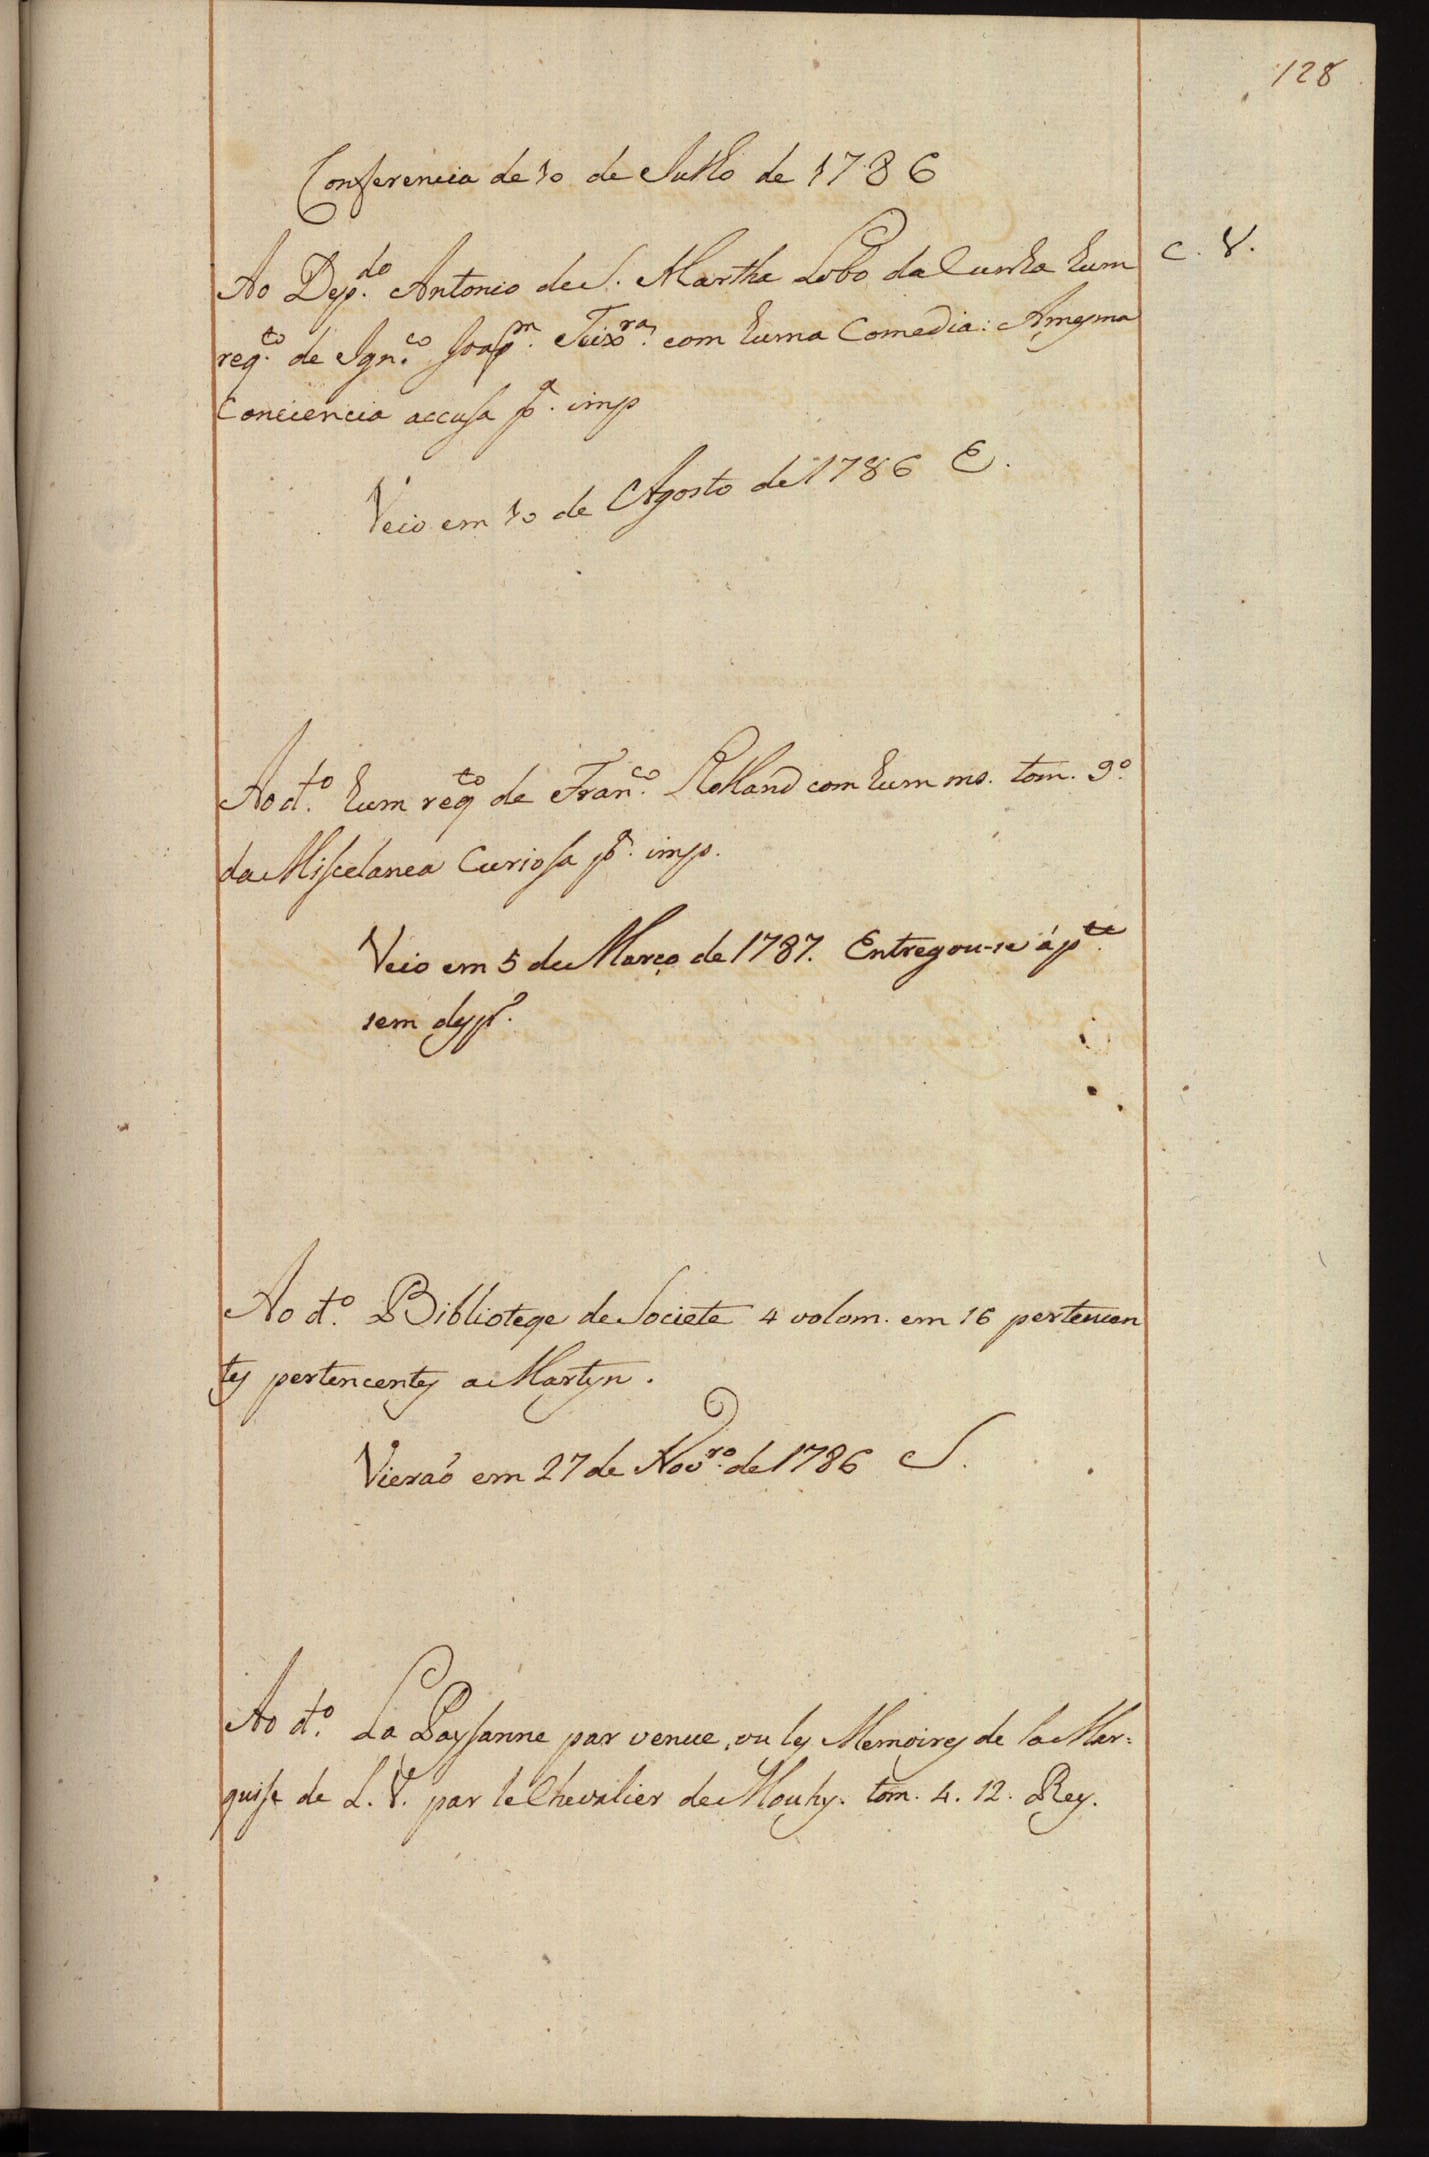 128
Conferencia de 10 de Julho de 1786
Ao Dep.do Antonio de S. Martha Lobo da Cunha hum
C. V.
req.to de Ign.co Joaq.m Teix.ra com huma Comedia: Amesma
Conciencia accusa p.a imp
Veio em 10 de Agosto de 1786 E.
Ao d.o hum req.to de Fran.co Rolland com hum ms. tom. 9.o
da Miscelanea Curiosa p.a imp.
Veio em 5 de Março de 1787. Entregou-se á p.te
sem desp.o
Ao d.o Biblioteqe de Societe 4 volom. em 16 pertencen
tes pertencentes a Martyn.
Vieraõ em 27 de Nov.ro de 1786 S.
Ao d.o La Paysanne par venue, ou les Memoires de la Mar:
quise de L. V. par le Chevalier de Mouhy. tom. 4. 12. Rey.